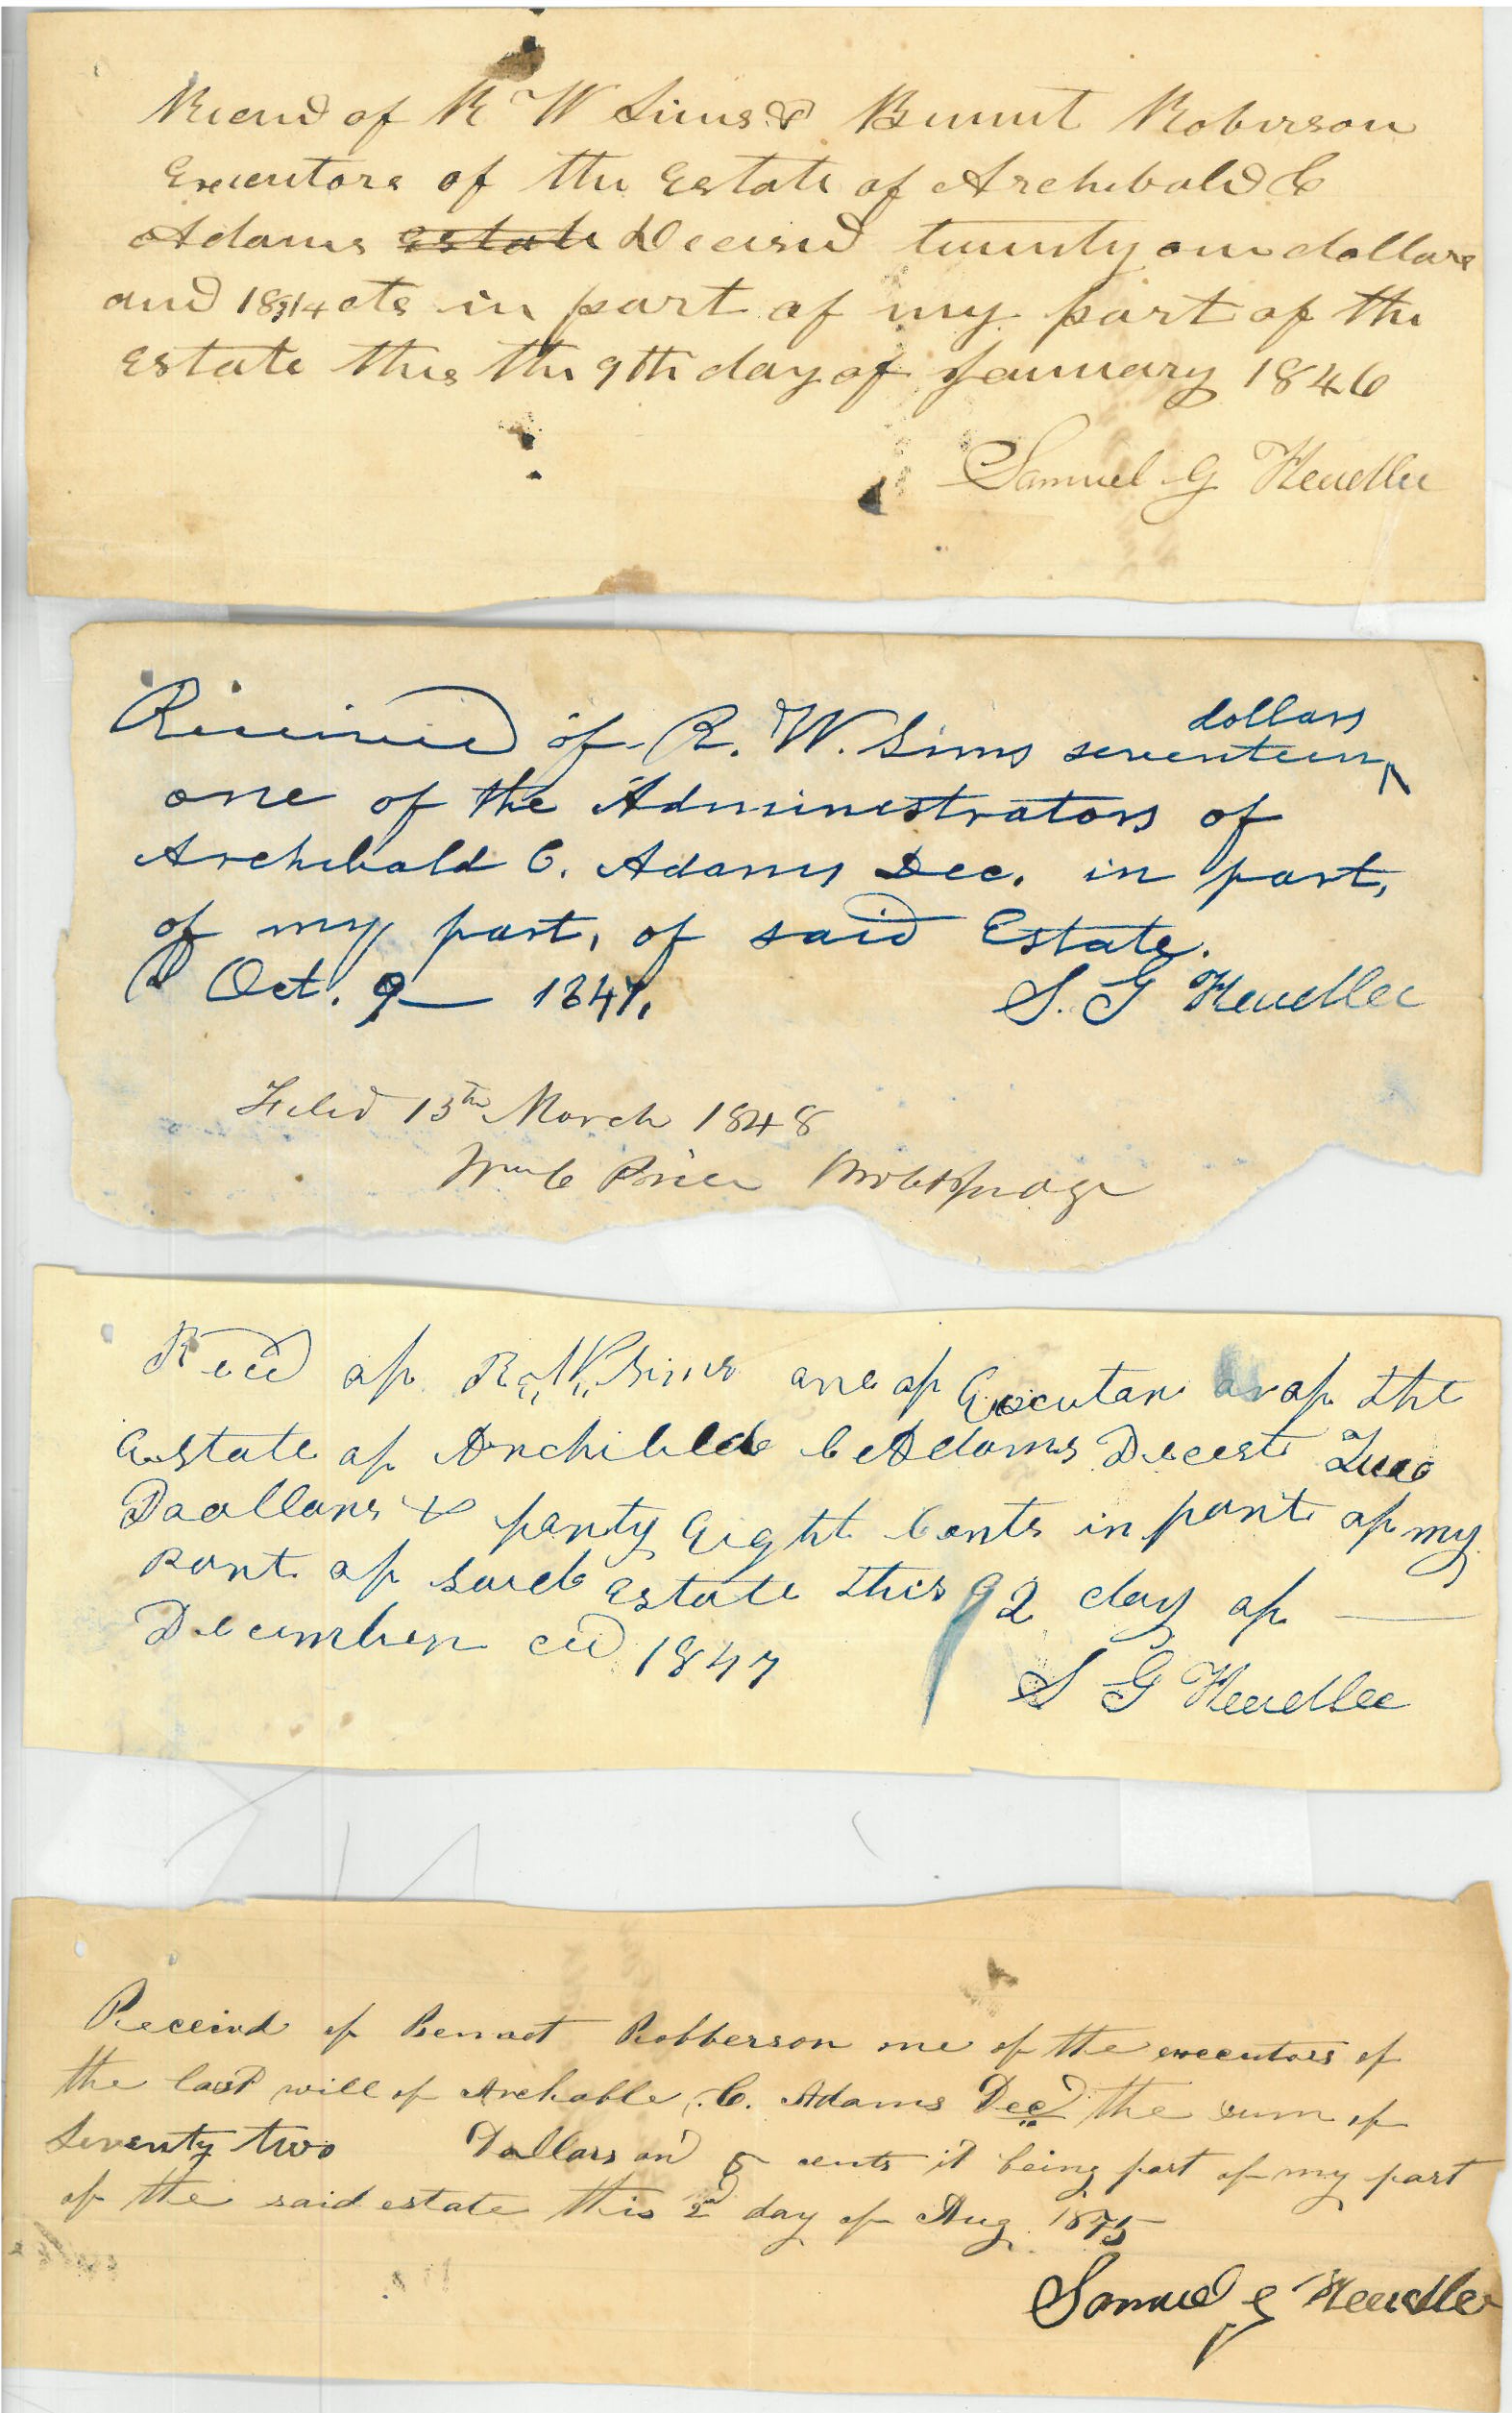 Recevd of R W Sims & Bennit Roberson
Executors of the Estate of Archibald C
Adams estate Decesd twenty one dollars
and 18 3/4 cts in part of my part of the
Estate this the 9th day of January 1846
Samuel G Headlee
dollars
Received of R. W. Sims seventeen ^
one of the Administrators of
Archibald C. Adams Dec. in part,
of my part, of said Estate.
Oct. 9 — 1847,
S. G Headlee
Filed 13th March 1848
Wm C Price Prob Judge
Recd of R. W. Sims one of Executor of the
Estate of Archibled C Adams Decest Two
Daollars & forty Eight Cents in part of my
Part of said Estate this 2 day of —
December ad 1847
S G Headlee
Receivd of Bennet Robberson one of the executors of
the last will of Archable C. Adams Decd the sum of
Seventy two Dollars and 5 cents it being part of my part
of the said estate this 2nd day of Aug. 1845
Samuel G Headlee